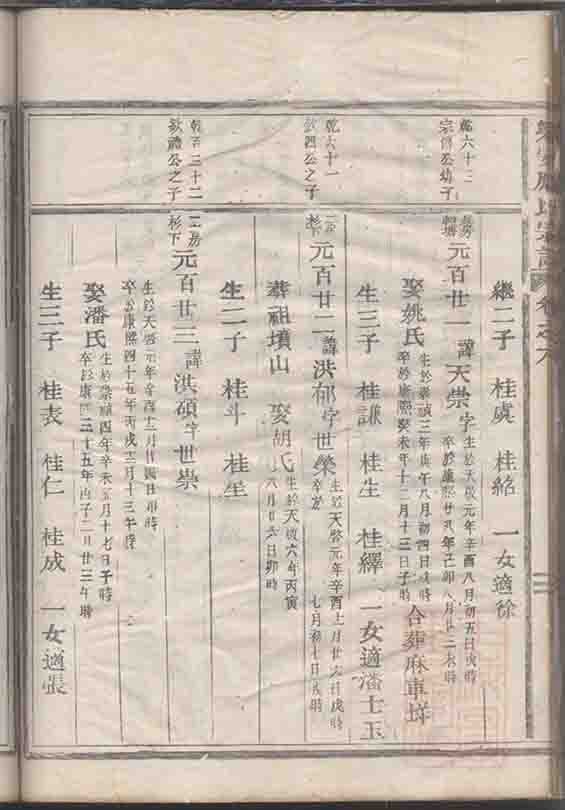 應氏宗譜
卷之八
繼二子 桂虞 桂紹 一女適徐
乾六十二
宗傳公幼子
元百廿一諱天崇字
生於天啟元年辛酉八月初五日戌時
卒於康熙廿八年己卯八月廿二未時
娶姚氏
生於崇禎三年庚午八月初四日戌時
卒於康熙癸未年十二月十三日子時
合葬麻車垟
生三子 桂謙 桂生 桂繹 一女適潘士玉
乾六十一
欽四公之子
杉下
元百廿二諱洪郁字世榮
生於天啟元年辛酉十一月廿六日戌時
卒於
七月初七日戌時
葬祖墳山 娶胡氏
生於天啟六年丙寅
八月廿六日卯時
生二子 桂斗 桂生
乾百三十二
欽禮公之子
二房
杉下
元百廿三諱洪碩字世崇
生於天啟元年辛酉十二月廿四日卯時
卒於康熙四十五年丙戌三月十三午時
娶潘氏
生於崇禎四年辛未五月十七日子時
卒於康熙三十五年丙子二月廿三午時
生三子 桂表 桂仁 桂成 一女適張